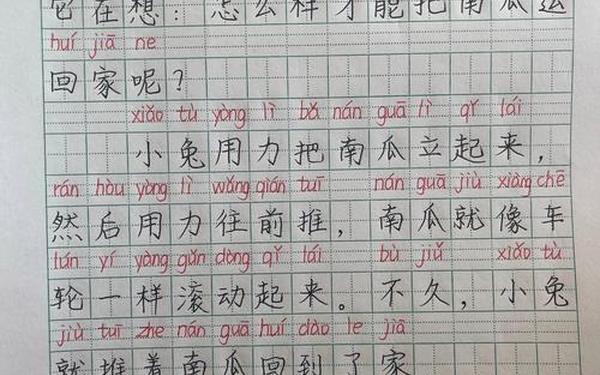 它在想：怎么样才能把南瓜运
huí jiā ne
回家呢？
xiǎo tù yòng lì bǎ nán guā lì qǐ lái
小兔用力把南瓜立起来，
rán hòu yòng lì wǎng qián tuī nán guā jiù xiàng chē
然后用力往前推，南瓜就像车
lún yí yàng gǔn dòng qǐ lái bù jiǔ xiǎo tù
轮一样滚动起来。不久，小兔
jiù tuī zhe nán guā huí dào le jiā
就推着南瓜回到了家